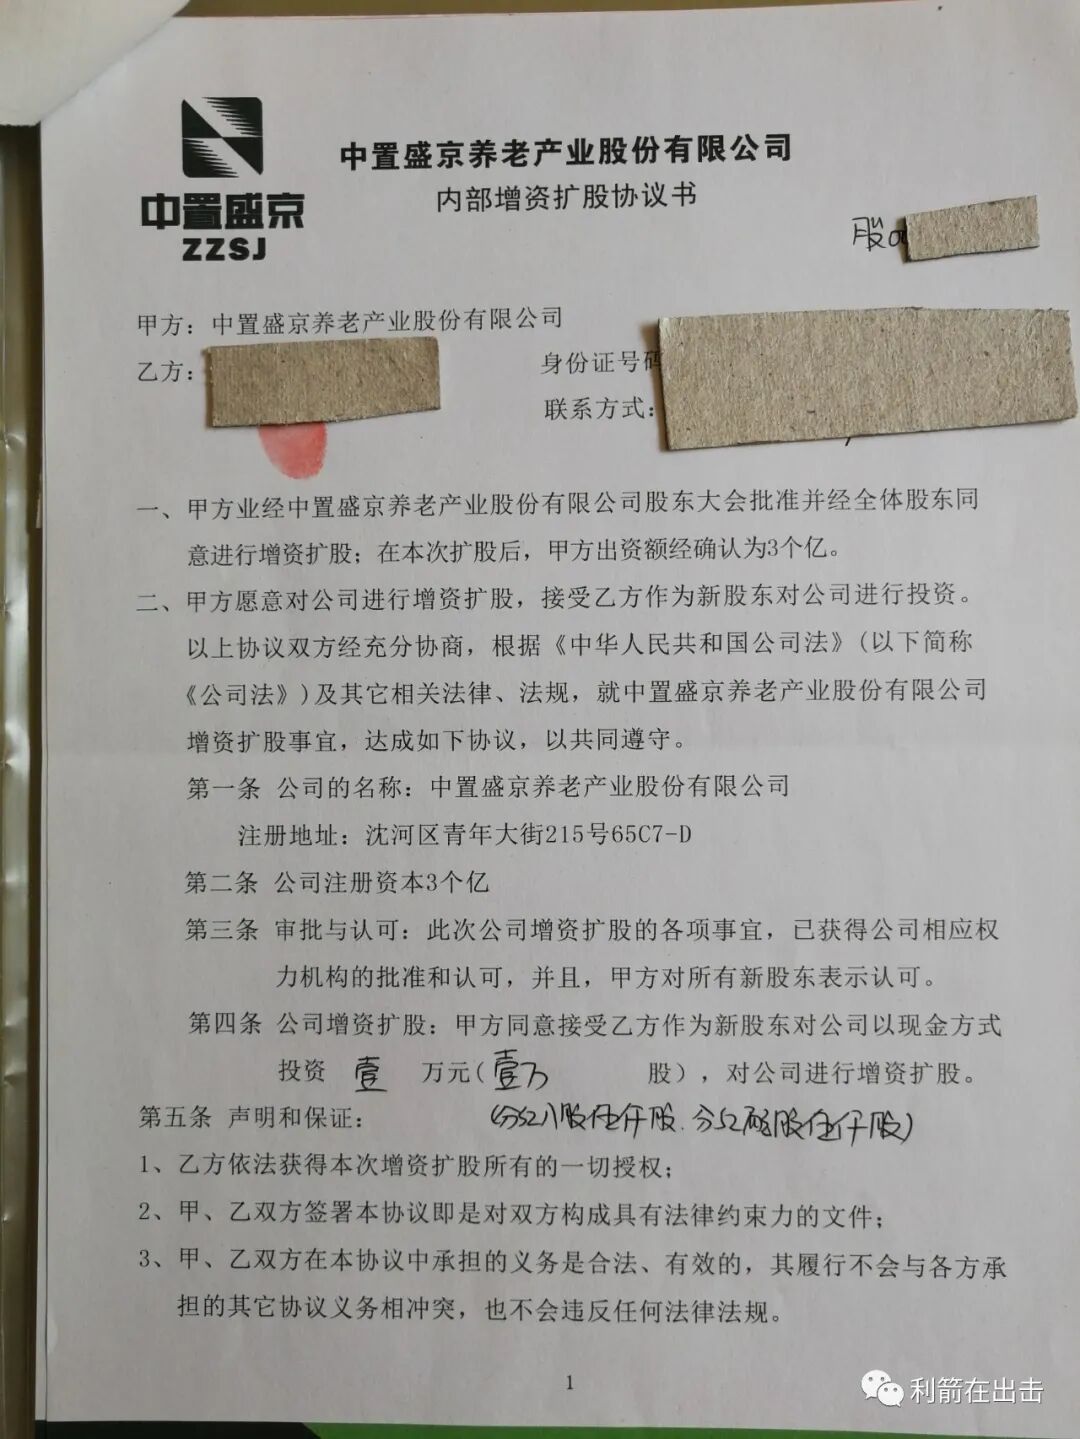 中置盛京
ZZSJ
中置盛京养老产业股份有限公司
内部增资扩股协议书
股
甲方：中置盛京养老产业股份有限公司
乙方：
身份证号码
联系方式：
一、甲方业经中置盛京养老产业股份有限公司股东大会批准并经全体股东同
意进行增资扩股；在本次扩股后，甲方出资额经确认为3个亿。
二、甲方愿意对公司进行增资扩股，接受乙方作为新股东对公司进行投资。
以上协议双方经充分协商，根据《中华人民共和国公司法》(以下简称
《公司法》)及其它相关法律、法规，就中置盛京养老产业股份有限公司
增资扩股事宜，达成如下协议，以共同遵守。
第一条 公司的名称：中置盛京养老产业股份有限公司
注册地址：沈河区青年大街215号65C7-D
第二条 公司注册资本3个亿
第三条 审批与认可：此次公司增资扩股的各项事宜，已获得公司相应权
力机构的批准和认可，并且，甲方对所有新股东表示认可。
第四条 公司增资扩股：甲方同意接受乙方作为新股东对公司以现金方式
投资 壹 万元(壹万 股)，对公司进行增资扩股。
第五条 声明和保证：
(分红 股伍仟股. 分红 股伍仟股)
1、乙方依法获得本次增资扩股所有的一切授权；
2、甲、乙双方签署本协议即是对双方构成具有法律约束力的文件；
3、甲、乙双方在本协议中承担的义务是合法、有效的，其履行不会与各方承
担的其它协议义务相冲突，也不会违反任何法律法规。
1
利箭在出击